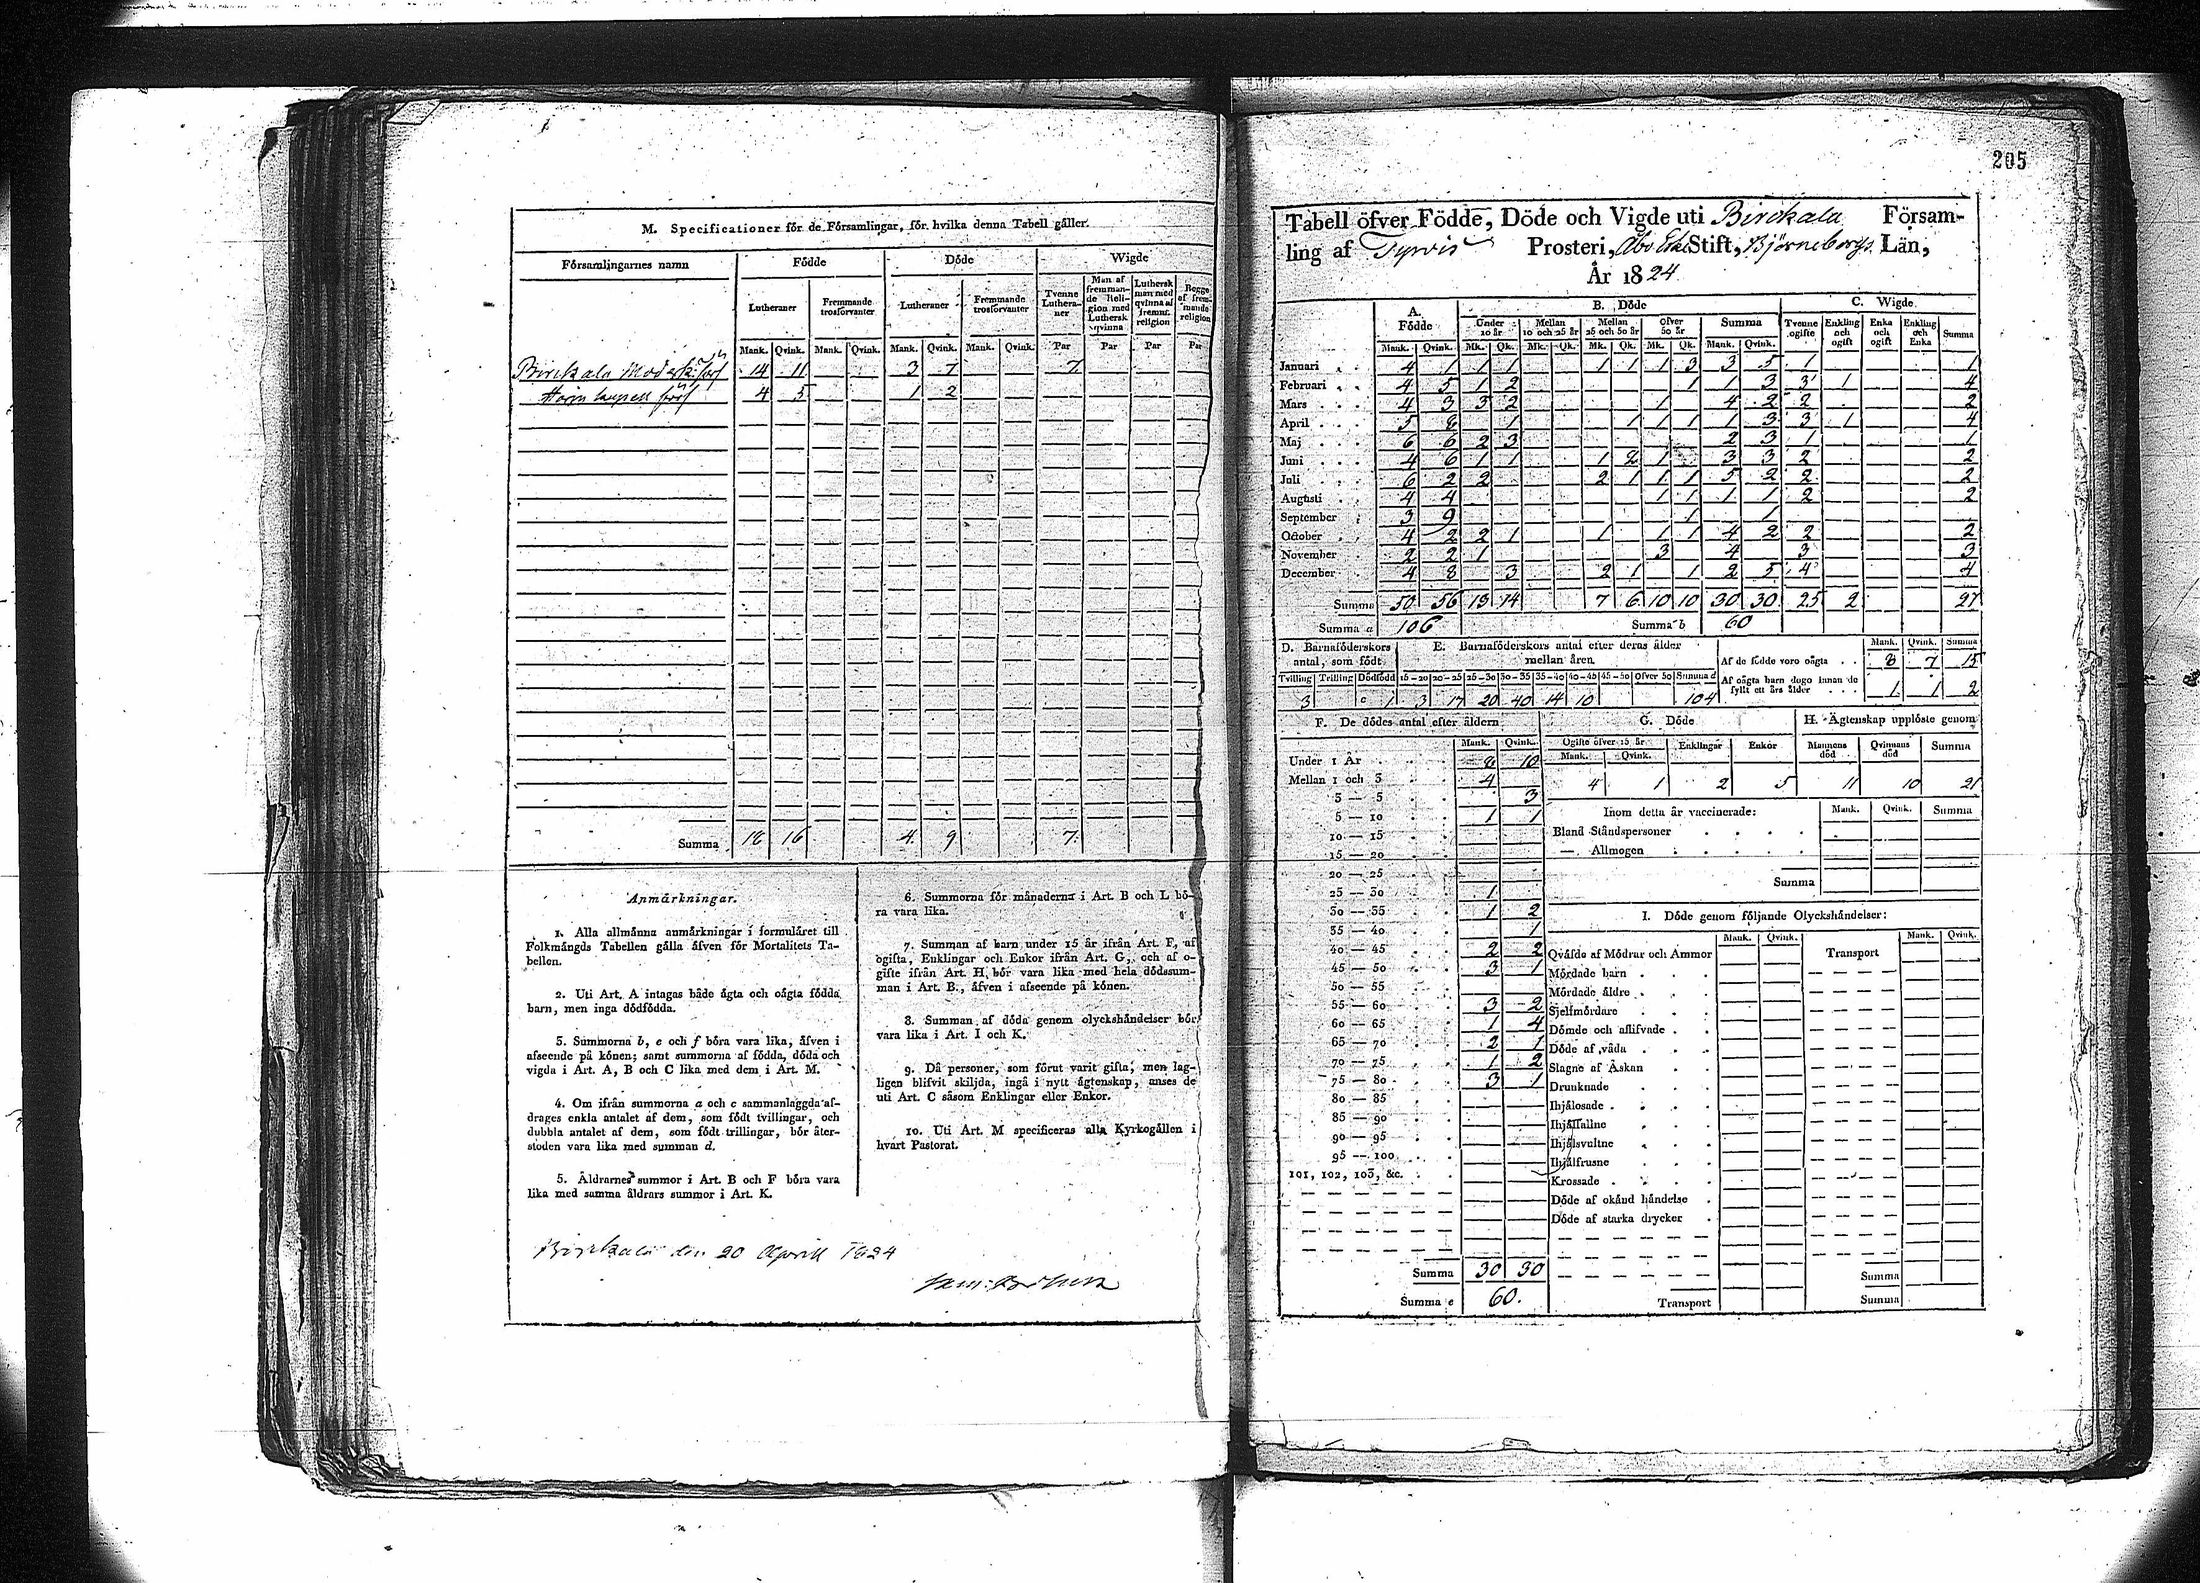 M. Specificationer för de Församlingar, för hvilka denna Tabell gäller.
Församlingarnes namn Födde Döde Wigde
Lutheraner Fremmande trosförvanter Lutheraner Fremmande trosförvanter Tvenne Lutheraner Man af fremmande Religion med Luthersk qvinna Luthersk man med qvinna af fremm. religion Begge af fremmande religion
Mank. Qvink. Mank. Qvink. Mank. Qvink. Mank. Qvink. Par Par Par Par
Birckala Moderk: förs 14 11 3 7 7.
4 5 1 2
Summa 18 16 4. 9 7.
Anmärkningar.
1. Alla allmänna anmärkningar i formuläret till
Folkmängds Tabellen gälla äfven för Mortalitets Ta-
bellen.
2. Uti Art. A intagas både ägta och oägta födda
barn, men inga dödfödda.
3. Summorna b, e och f böra vara lika, äfven i
afseende på könen; samt summorna af födda, döda och
vigda i Art. A, B och C lika med dem i Art. M.
4. Om ifrån summorna a och c sammanlaggda af-
drages enkla antalet af dem, som födt tvillingar, och
dubbla antalet af dem, som födt trillingar, bör åter-
stoden vara lika med summan d.
5. Åldrarnes summor i Art. B och F böra vara
lika med samma åldrars summor i Art. K.
6. Summorna för månaderna i Art. B och L bö-
ra vara lika.
7. Summan af barn under 15 år ifrån Art. F, af
ogifta, Enklingar och Enkor ifrån Art. G, och af o-
gifte ifrån Art. H, bör vara lika med hela dödssum-
man i Art. B., äfven i afseende på könen.
8. Summan af döda genom olyckshändelser bör
vara lika i Art. I och K.
9. Då personer, som förut varit gifta, men lag-
ligen blifvit skiljda, ingå i nytt ägtenskap, anses de
uti Art. C såsom Enklingar eller Enkor.
10. Uti Art. M specificeras alla Kyrkogällen i
hvart Pastorat.
Birckala den 20 Aprill 1824
205
Tabell öfver Födde, Döde och Vigde uti Birckala Försam-
ling af Tyrvis Prosteri, Åbo Stift, Björneborgs Län,
År 1824.
A. Födde B. Döde C. Wigde
Under 10 år Mellan 10 och 25 år Mellan 25 och 50 år Öfver 50 år Summa Tvenne ogifte Enkling och ogift Enka och ogift Enkling och Enka Summa
Mank. Qvink. Mk. Qk. Mk. Qk. Mk. Qk. Mk. Qk. Mank. Qvink.
Januari 4 1 1 1 1 1 1 3 3 5 1 1
Februari 4 5 1 2 1 1 3 3 1 4
Mars 4 3 3 2 1 4 2 2 2
April 5 8 1 1 1 1 1 3 3 1 4
Maj 6 6 2 3 2 3 1 1
Juni 4 6 1 1 1 2 1 3 3 2 2
Juli 6 2 2 2 1 1 1 5 2 2 2
Augusti 4 4 1 1 1 1 2 2
September 3 9 1 1
October 4 2 2 1 1 1 1 4 2 2 2
November 2 2 1 3 4 3 3
December 4 8 3 2 1 1 2 5 4 4
Summa 50 56 13 14 7 6 10 10 30 30 25 2 27
Summa a 106 Summa b 60
D. Barnaföderskors antal, som födt
E. Barnaföderskors antal efter deras ålder mellan åren
Mank. Qvink. Summa
Af de födde voro oägta 8 7 15
Af oägta barn dogo innan de fyllt ett års ålder 1 1 2
Tvilling Trilling Dödfödd 15-20 20-25 25-30 30-35 35-40 40-45 45-50 Öfver 50 Summa d
3 c 1 3 17 20 40 14 10 104
F. De dödes antal efter åldern
Mank. Qvink.
Under 1 År 8 10
Mellan 1 och 3 4
3 — 5 3
5 — 10 1 1
10 — 15
15 — 20
20 — 25
25 — 30 1
30 — 35 1 2
35 — 40 1
40 — 45 2 2
45 — 50 3 1
50 — 55
55 — 60 3 2
60 — 65 1 4
65 — 70 2 1
70 — 75 1 2
75 — 80 3 1
80 — 85
85 — 90
90 — 95
95 — 100
101, 102, 103, &c.
Summa 30 30
Summa e 60.
G. Döde
Ogifte öfver 15 år Enklingar Enkor
Mank. Qvink.
4 1 2 5
H. Ägtenskap upplöste genom
Mannens död Qvinnans död Summa
11 10 21
Inom detta år vaccinerade: Mank. Qvink. Summa
Bland Ståndspersoner
— Allmogen
Summa
I. Döde genom följande Olyckshändelser:
Mank. Qvink. Transport Mank. Qvink.
Qväfde af Mödrar och Ammor
Mördade barn
Mördade äldre
Sjelfmördare
Dömde och aflifvade
Döde af våda
Slagne af Åskan
Drunknade
Ihjälosade
Ihjälfallne
Ihjälsvultne
Ihjälfrusne
Krossade
Döde af okänd händelse
Döde af starka drycker
Summa
Transport Summa